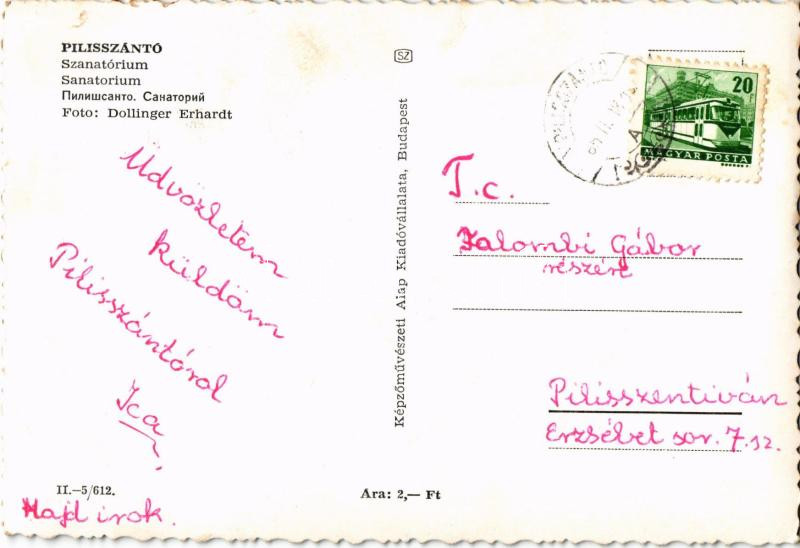 PILISSZÁNTÓ
Szanatórium
Sanatorium
Пилишсанто. Санаторий
Foto: Dollinger Erhardt
Üdvözletem
küldöm
Pilisszántóról
Ica
II.—5/612.
Majd irok.
SZ
Képzőművészeti Alap Kiadóvállalata, Budapest
Ara: 2,— Ft
PILISSZÁNTÓ
20
MAGYAR POSTA
T.c.
Zalombi Gábor
részére
Pilisszentiván
Erzsébet sor. 7.sz.